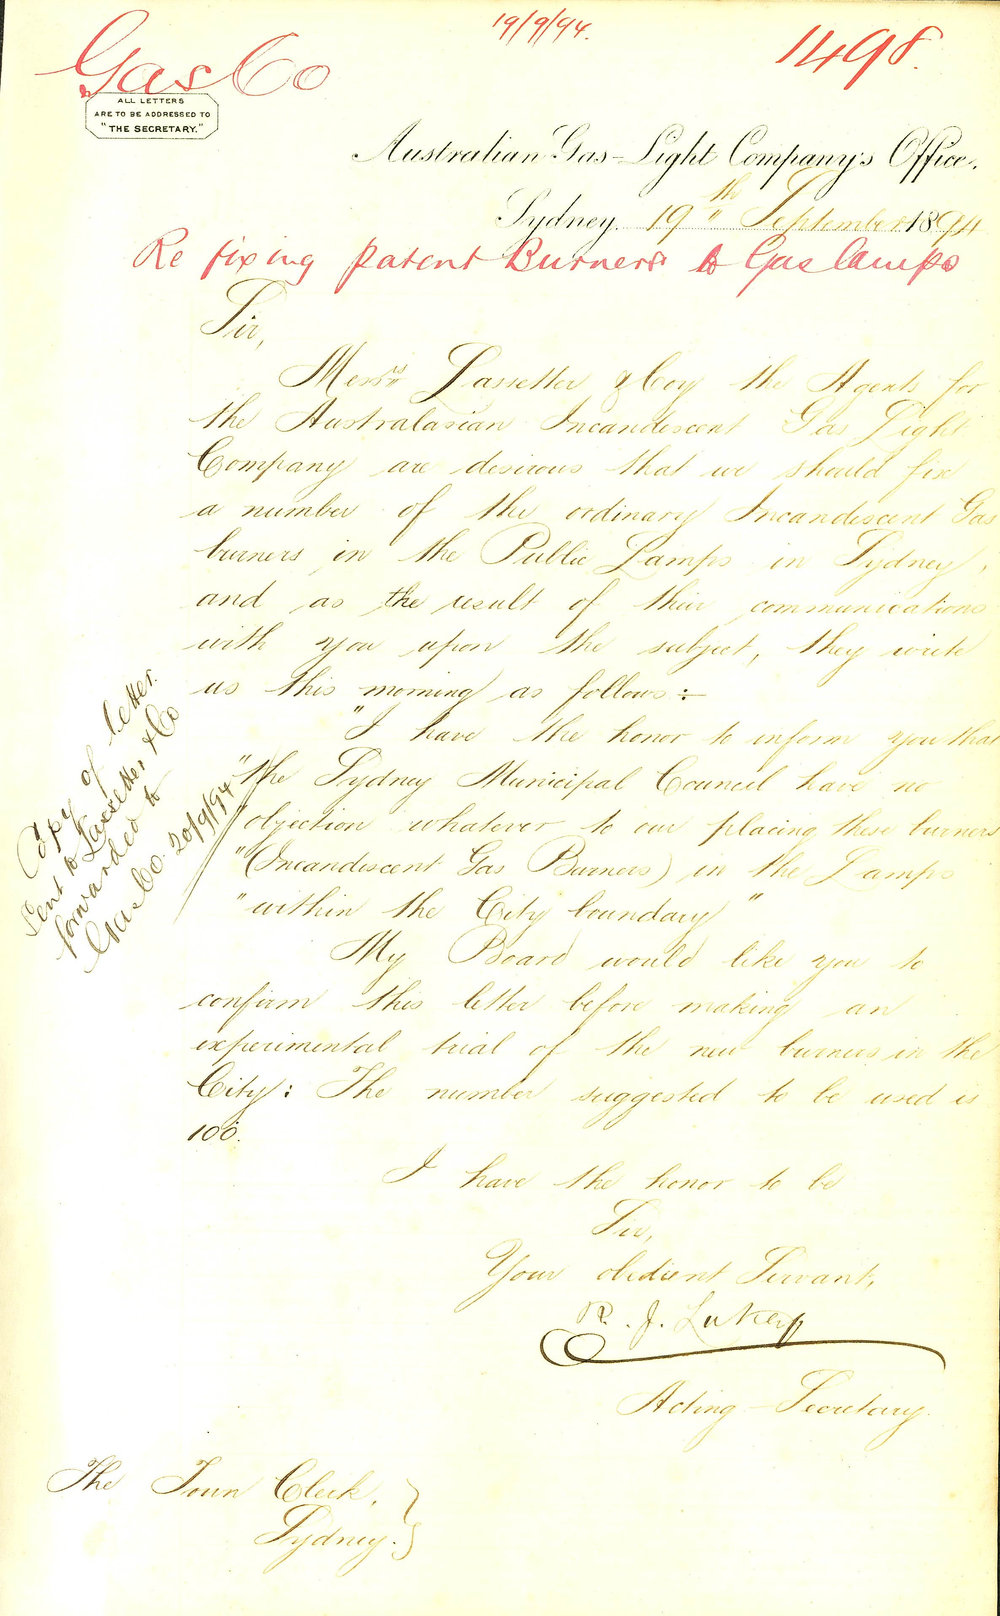 19/9/94.
Gas Co
1498.
ALL LETTERS
ARE TO BE ADDRESSED TO
"THE SECRETARY."
Australian Gas-Light Company's Office.
Sydney. 19th September 1894
Re fixing patent Burners to Gas Lamps
Sir,
Messrs Lassetter & Coy the Agents for
the Australasian Incandescent Gas Light
Company are desirous that we should fix
a number of the ordinary Incandescent Gas
burners in the Public Lamps in Sydney,
and as the result of their communications
with you upon the subject, they write
us this morning as follows:-
"I have the honor to inform you that
"the Sydney Municipal Council have no
"objection whatever to our placing these burners
"(Incandescent Gas Burners) in the Lamps
"within the City boundary"
My Board would like you to
confirm this letter before making an
experimental trial of the new burners in the
City: The number suggested to be used is
100.
I have the honor to be
Sir,
Your obedient Servant,
R. J. Lukey
Acting-Secretary.
The Town Clerk,
Sydney.
Copy of letter
sent to Lassetter & Co
forwarded to
Gas Co. 20/9/94